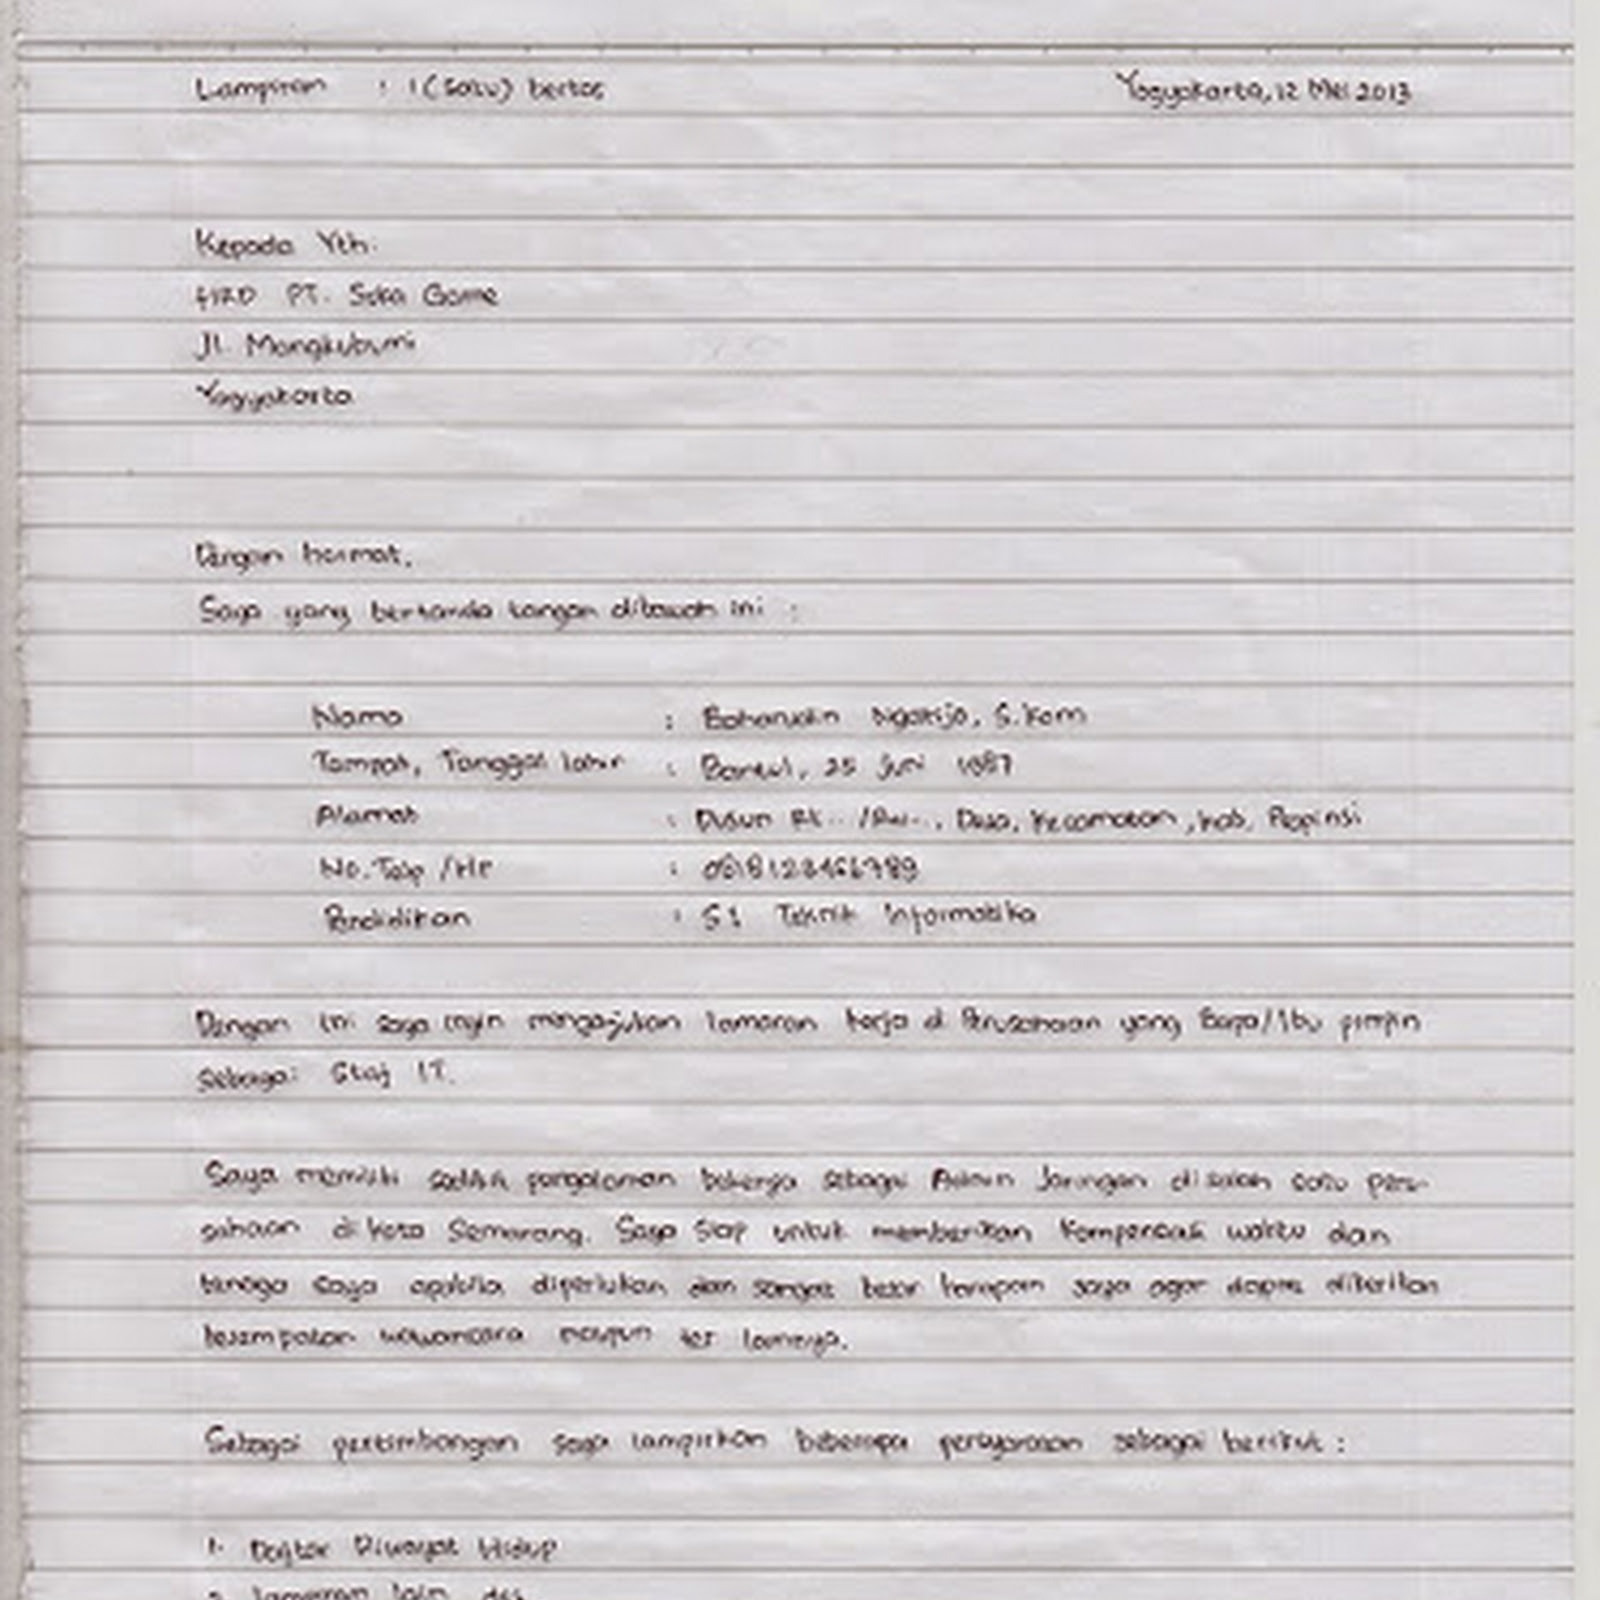 Lampiran : 1 (satu) berkas Yogyakarta, 12 Mei 2013
Kepada Yth.
HRD PT. Suka Game
Jl. Mangkubumi
Yogyakarta
Dengan hormat,
Saya yang bertanda tangan dibawah ini :
Nama : Baharudin Ngatijo, S.Kom
Tempat, Tanggal lahir : Bantul, 25 Juni 1987
Alamat : Dusun Rt.. /Rw.., Desa, Kecamatan, Kab, Propinsi
No. Telp /HP :
Pendidikan : S1 Teknik Informatika
Dengan ini saya ingin mengajukan lamaran kerja di Perusahaan yang Bapa/Ibu pimpin
sebagai Staf IT.
Saya memiliki sedikit pengalaman bekerja sebagai Admin Jaringan di salah satu peru-
sahaan di kota Semarang. Saya siap untuk memberikan kompensasi waktu dan
tenaga saya apabila diperlukan dan sangat besar harapan saya agar dapat diberikan
kesempatan wawancara maupun tes lainnya.
Sebagai pertimbangan saya lampirkan beberapa persyaratan sebagai berikut :
1. Daftar Riwayat Hidup
2. lampiran lain, dst